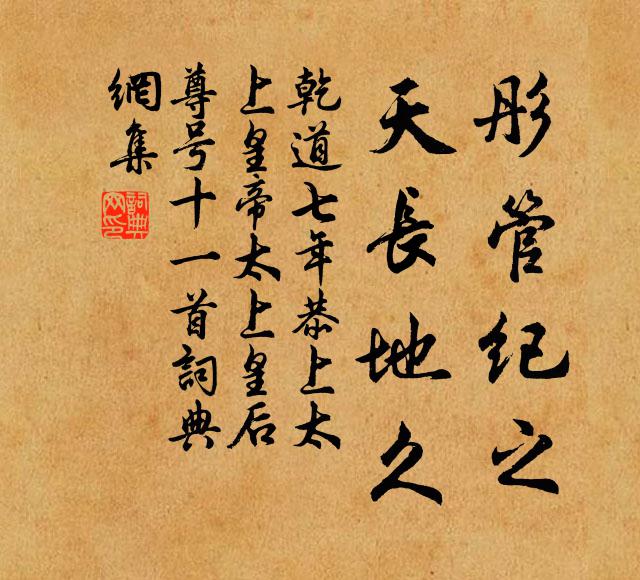 彤管纪之
天長地久
乾道七年恭上太
上皇帝太上皇后
尊号十一首詞典
網集
詞典網印